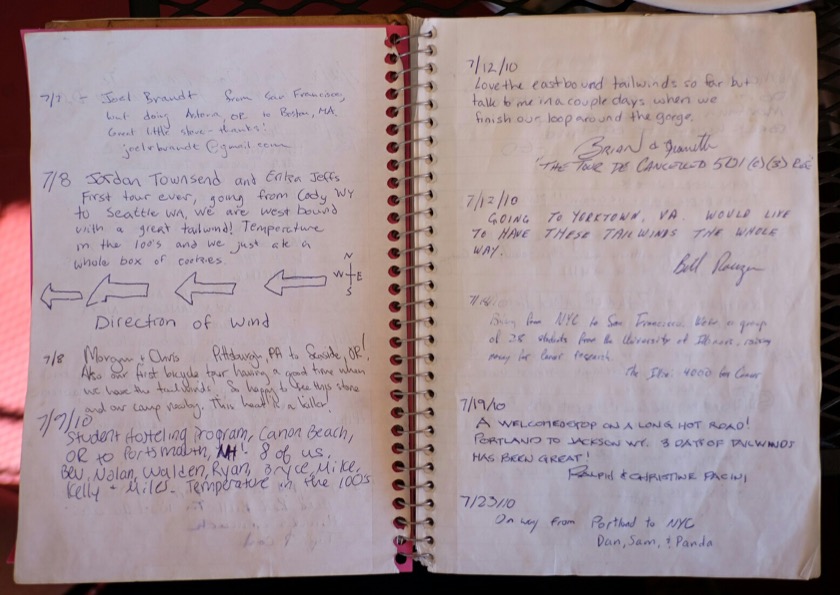 7/7 - Joel Brandt from San Francisco,
but doing Astoria, OR to Boston, MA.
Great little store - thanks!
joelrbrandt@gmail.com
7/8 Jordan Townsend and Erika Jeffs
First tour ever, going from Cody WY
to Seattle WA, we are west bound
with a great tailwind! Temperature
in the 100's and we just ate a
whole box of cookies.
N
W E
S
Direction of Wind
7/8 Morgan + Chris Pittsburgh, PA to Seaside, OR!
Also our first bicycle tour having a good time when
we have the tailwinds. So happy to see this store
and our camp nearby. This heat is a killer.
7/9/10
Student Hosteling Program, Canon Beach,
OR to Portsmouth, NH! 8 of us.
Bev, Nolan, Walden, Ryan, Bryce, Mike,
Kelly + Miles. Temperature in the 100's
7/12/10
Love the eastbound tailwinds so far but
talk to me in a couple days when we
finish our loop around the gorge.
Brian &
"The Tour de Cancelled 501(c)(3)
7/12/10
GOING TO YORKTOWN, VA. WOULD LIKE
TO HAVE THESE TAILWINDS THE WHOLE
WAY.
Bill
Biking from NYC to San Francisco. We're a group
of 28 students from the University of Illinois, raising
money for cancer research.
The Illini 4000 for Cancer
7/19/10
A WELCOMED STOP ON A LONG HOT ROAD!
PORTLAND TO JACKSON WY. 3 DAYS OF TAILWINDS
HAS BEEN GREAT!
RALPH & CHRISTINE PACINI
7/23/10
On way from Portland to NYC
Dan, Sam, & Panda